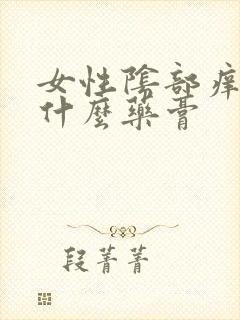 女性陰部痒
什麼藥膏
段菁菁